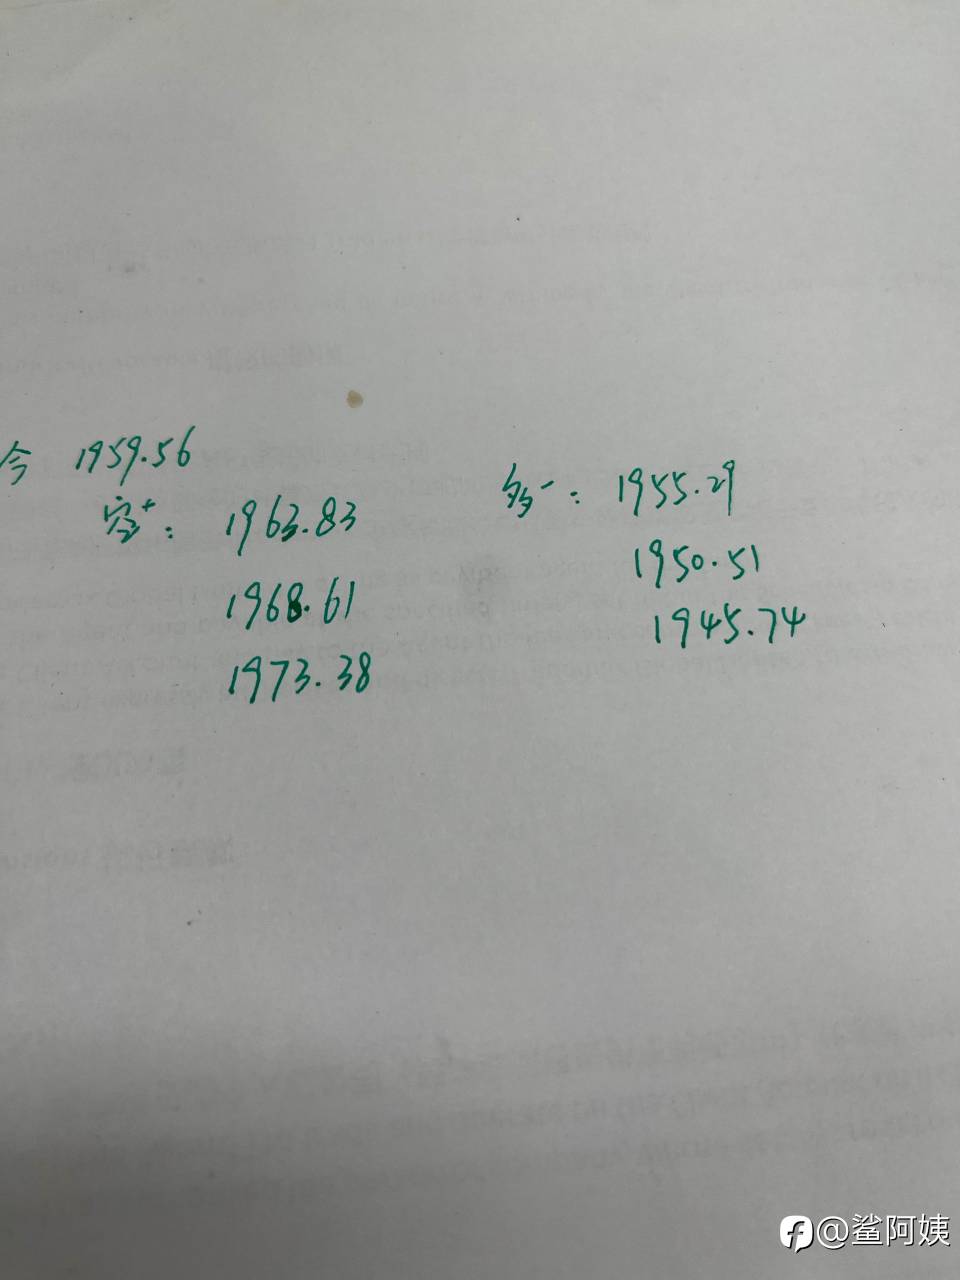 今 1959.56
空+: 1963.83
1968.61
1973.38
多-: 1955.29
1950.51
1945.74
@鲨阿姨